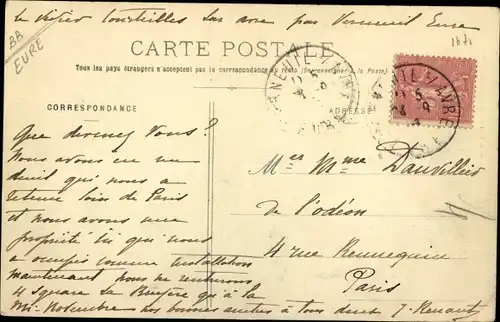 le Vésier Courteilles sur avre par Verneuil Eure
BB
EURE
CARTE POSTALE
Tous les pays étrangers n'acceptent pas la correspondance au recto (Se renseigner à la Poste)
CORRESPONDANCE
ADRESSE
Que devenez vous?
Nous avons eu un
deuil qui nous a
retenu loin de Paris
et nous avons une
propriété ici qui nous
a occupés comme installation
maintenant nous ne rentrerons
4 Square La Bruyère qu'à la
mi-Novembre nos bonnes amitiés à tous deux J. Renault
Mr et Mme Dauvilliers
de l'odéon
4 rue Rennequin
Paris